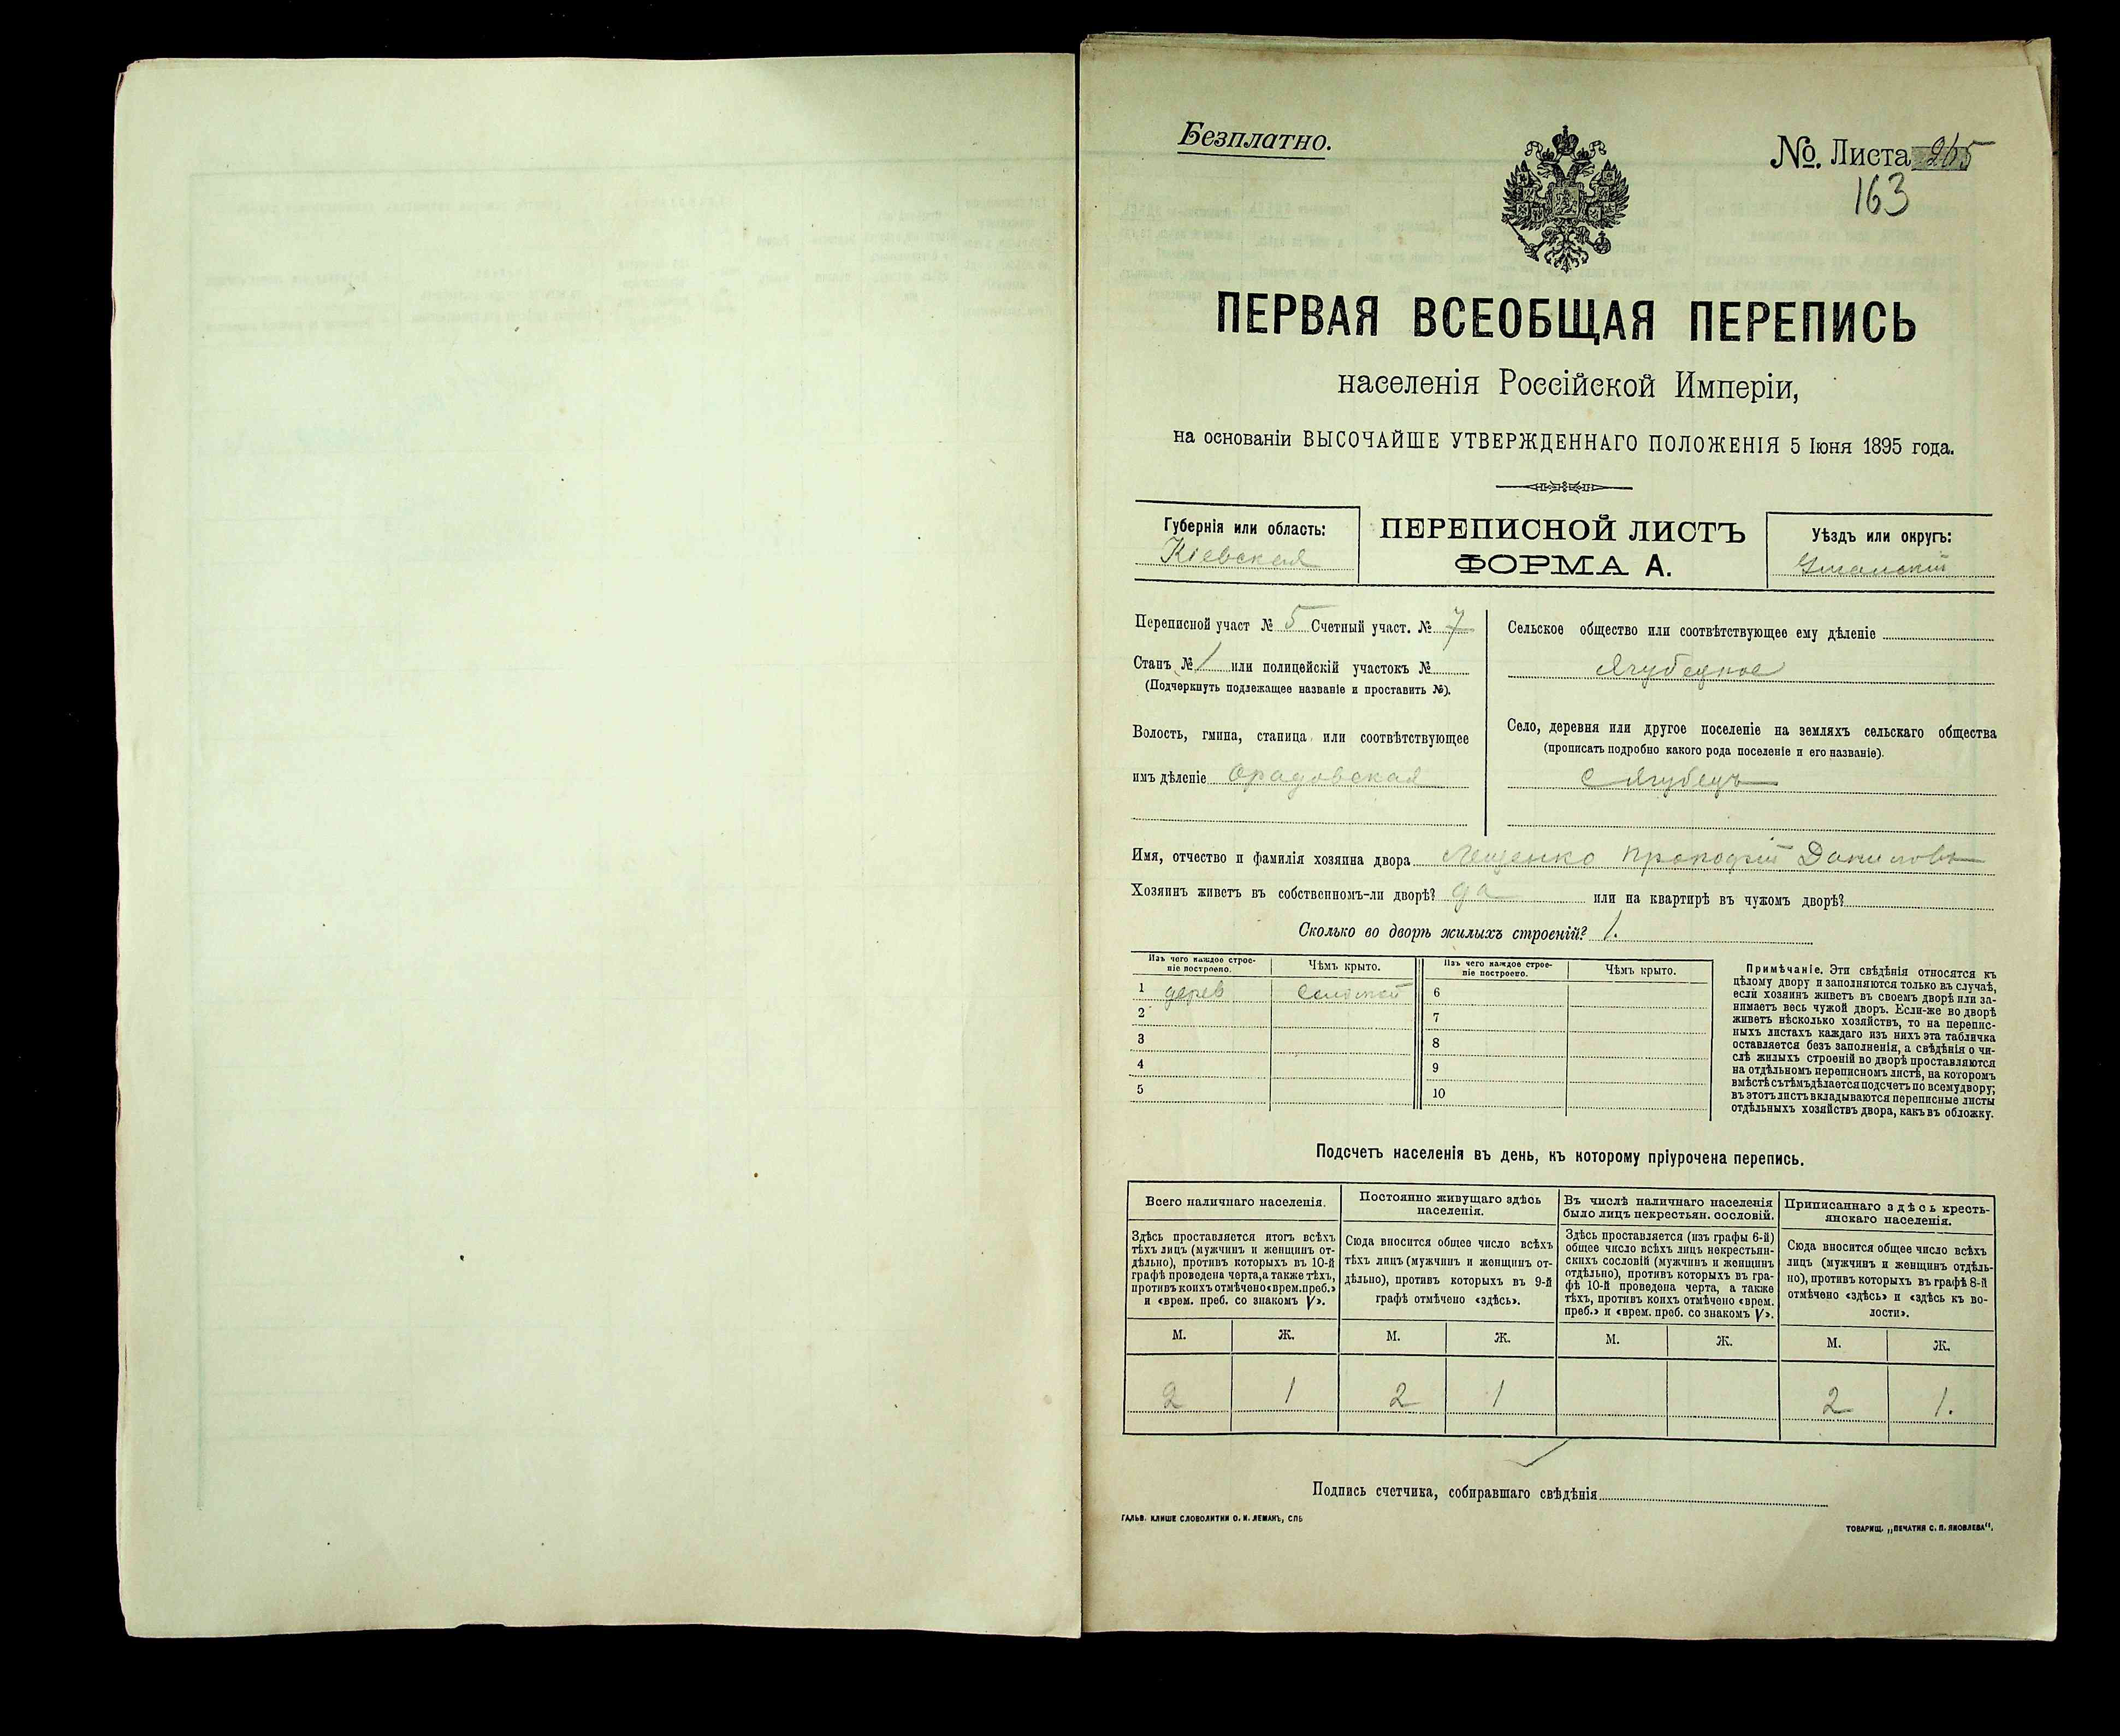 Безплатно.
№. Листа 265
163
ПЕРВАЯ ВСЕОБЩАЯ ПЕРЕПИСЬ
населенія Россійской Имперіи,
на основаніи ВЫСОЧАЙШЕ УТВЕРЖДЕННАГО ПОЛОЖЕНІЯ 5 Іюня 1895 года.
Губернія или область:
Кіевская
ПЕРЕПИСНОЙ ЛИСТЪ
ФОРМА А.
Уѣздъ или округъ:
Уманскій
Переписной участ № 5 Счетный участ. № 7
Станъ № 1 или полицейскій участокъ №
(Подчеркнуть подлежащее названіе и проставить №).
Волость, гмина, станица или соотвѣтствующее
имъ дѣленіе Орадовская
Сельское общество или соотвѣтствующее ему дѣленіе
Ягубецкое
Село, деревня или другое поселеніе на земляхъ сельскаго общества
(прописать подробно какого рода поселеніе и его названіе).
с Ягубецъ
Имя, отчество и фамилія хозяина двора Лещенко Прокофій Даниловъ
Хозяинъ живетъ въ собственномъ-ли дворѣ? да или на квартирѣ въ чужомъ дворѣ?
Сколько во дворѣ жилыхъ строеній? 1.
Изъ чего каждое строе-
ніе построено.
Чѣмъ крыто.
Изъ чего каждое строе-
ніе построено.
Чѣмъ крыто.
1 дерев соломой 6
2 7
3 8
4 9
5 10
Примѣчаніе. Эти свѣдѣнія относятся къ
цѣлому двору и заполняются только въ случаѣ,
если хозяинъ живетъ въ своемъ дворѣ или за-
нимаетъ весь чужой дворъ. Если-же во дворѣ
живетъ нѣсколько хозяйствъ, то на перепис-
ныхъ листахъ каждаго изъ нихъ эта табличка
оставляется безъ заполненія, а свѣдѣнія о чи-
слѣ жилыхъ строеній во дворѣ проставляются
на отдѣльномъ переписномъ листѣ, на которомъ
вмѣстѣ съ тѣмъ дѣлается подсчетъ по всему двору;
въ этотъ листъ вкладываются переписные листы
отдѣльныхъ хозяйствъ двора, какъ въ обложку.
Подсчетъ населенія въ день, къ которому пріурочена перепись.
Всего наличнаго населенія.
Здѣсь проставляется итогъ всѣхъ
тѣхъ лицъ (мужчинъ и женщинъ от-
дѣльно), противъ которыхъ въ 10-й
графѣ проведена черта, а также тѣхъ,
противъ коихъ отмѣчено «врем. преб.»
и «врем. преб. со знакомъ V».
Постоянно живущаго здѣсь
населенія.
Сюда вносится общее число всѣхъ
тѣхъ лицъ (мужчинъ и женщинъ от-
дѣльно), противъ которыхъ въ 9-й
графѣ отмѣчено «здѣсь».
Въ числѣ наличнаго населенія
было лицъ некрестьян. сословій.
Здѣсь проставляется (изъ графы 6-й)
общее число всѣхъ лицъ некрестьян-
скихъ сословій (мужчинъ и женщинъ
отдѣльно), противъ которыхъ въ гра-
фѣ 10-й проведена черта, а также
тѣхъ, противъ коихъ отмѣчено «врем.
преб.» и «врем. преб. со знакомъ V».
Приписаннаго здѣсь кресть-
янскаго населенія.
Сюда вносится общее число всѣхъ
лицъ (мужчинъ и женщинъ отдѣль-
но), противъ которыхъ въ графѣ 8-й
отмѣчено «здѣсь» и «здѣсь къ во-
лости».
М. Ж. М. Ж. М. Ж. М. Ж.
2 1 2 1 2 1.
Подпись счетчика, собиравшаго свѣдѣнія
ГАЛЬВ. КЛИШЕ СЛОВОЛИТНИ О. И. ЛЕМАНЪ, СПБ
ТОВАРИЩ. „ПЕЧАТНЯ С. П. ЯКОВЛЕВА“.